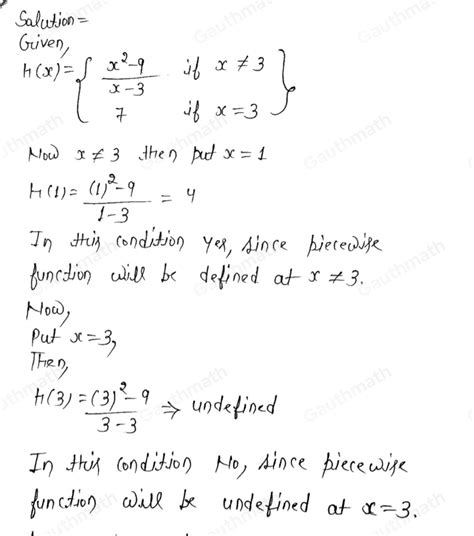 Solution =
Given,
h(x) = { x²-9 / x-3 if x ≠ 3
7 if x = 3 }
Now x ≠ 3 then put x = 1
H(1) = (1)²-9 / 1-3 = 4
In this condition yes, since piecewise
function will be defined at x ≠ 3.
Now,
Put x = 3,
Then,
H(3) = (3)²-9 / 3-3 ⇒ undefined
In this condition No, since piecewise
function will be undefined at x = 3.